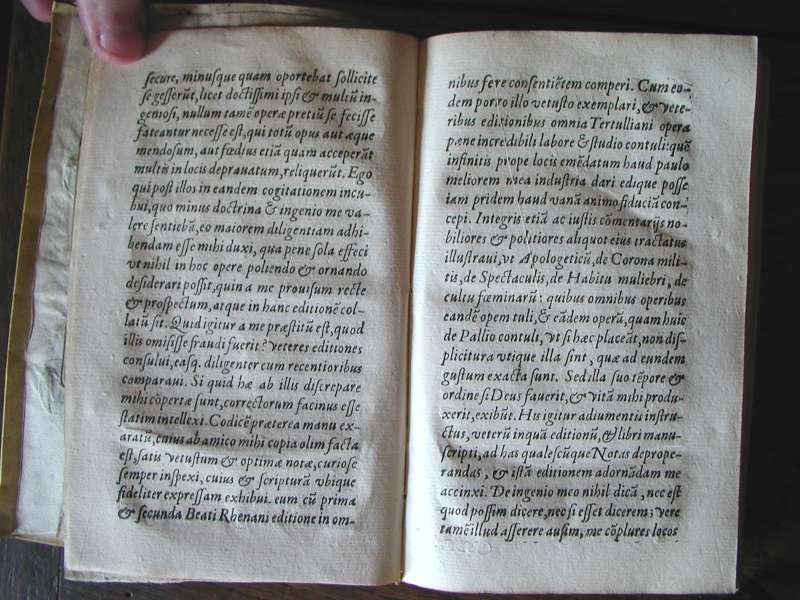 ſecure, minuſque quam oportebat ſollicite
ſe geſſerũt, licet doctiſſimi ipſi & multũ in-
genioſi, nullum tamẽ operæ pretiũ ſe feciſſe
fateantur neceſſe eſt, qui totũ opus aut æque
mendoſum, aut fœdius etiã quam acceperãt
multis in locis deprauatum, reliquerũt. Ego
qui poſt illos in eandem cogitationem incu-
bui, quo minus doctrina & ingenio me va-
lere ſentiebã, eo maiorem diligentiam adhi-
bendam eſſe mihi duxi, qua pene ſola effeci
vt nihil in hoc opere poliendo & ornando
deſiderari poſſit, quin a me prouiſum recte
& proſpectum, atque in hanc editionẽ col-
latũ ſit. Quid igitur a me præſtitũ eſt, quod
illis omiſiſſe fraudi fuerit? veteres editiones
conſului, eaſq. diligenter cum recentioribus
comparaui. Si quid hæ ab illis diſcrepare
mihi cõpertæ ſunt, correctorum facinus eſſe
ſtatim intellexi. Codicẽ præterea manu ex-
aratũ, cuius ab amico mihi copia olim facta
eſt, ſatis vetuſtum & optimæ notæ, curioſe
ſemper inſpexi, cuius & ſcripturã vbique
fideliter expreſſam exhibui. eum cũ prima
& ſecunda Beati Rhenani editione in om-
nibus fere conſentiẽtem comperi. Cum eo-
dem porro illo vetuſto exemplari, & vete-
ribus editionibus omnia Tertulliani opera
pæne incredibili labore & ſtudio contuli: quo
infinitis prope locis emẽdatum haud paulo
meliorem mea induſtria dari edique poſſe
iam pridem haud vanã animo fiduciã con-
cepi. Integris etiã ac iuſtis cõmentarijs no-
biliores & politiores aliquot eius tractatus
illuſtraui, vt Apologeticũ, de Corona mili-
tis, de Spectaculis, de Habitu muliebri, de
cultu fœminarũ: quibus omnibus operibus
eandẽ opem tuli, & eãdem operã, quam huic
de Pallio contuli, vt ſi hæc placeãt, non diſ-
plicitura vtique illa ſint, quæ ad eundem
guſtum exacta ſunt. Sed illa ſuo tẽpore &
ordine ſi Deus fauerit, & vitã mihi produ-
xerit, exibũt. His igitur adiumentis inſtru-
ctus, veterũ inquã editionũ, & libri manu-
ſcripti, ad has qualeſcũque Notas deprope-
randas, & iſtã editionem adornãdam me
accinxi. De ingenio meo nihil dicã, nec eſt
quod poſſim dicere, nec ſi eſſet dicerem; vere
tamẽ illud aſſerere auſim, me cõplures locos